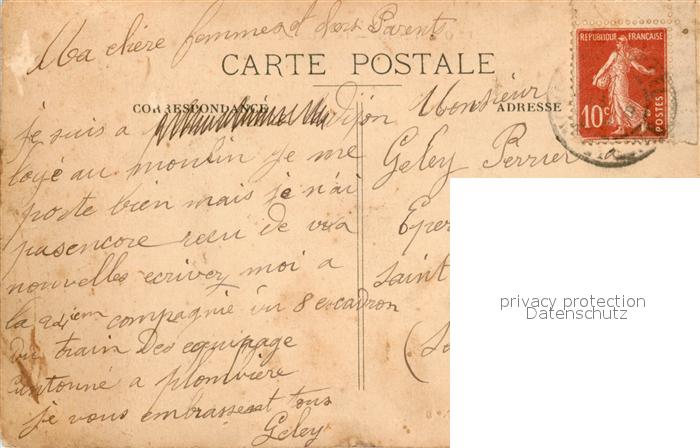 Ma chère femme et chers Parents
CARTE POSTALE
CORRESPONDANCE
ADRESSE
REPUBLIQUE FRANÇAISE
10c
POSTES
je suis a Dijon
logé au moulin je me
porte bien mais je n'ai
pasencore recu de vos
nouvelles ecrivez moi a
la compagnie du 8 escadron
du train Des equipage
cantonné a plombière
je vous embrasse tous
Geley
Monsieur
Geley Perrier a
Eper
saint
privacy protection
Datenschutz